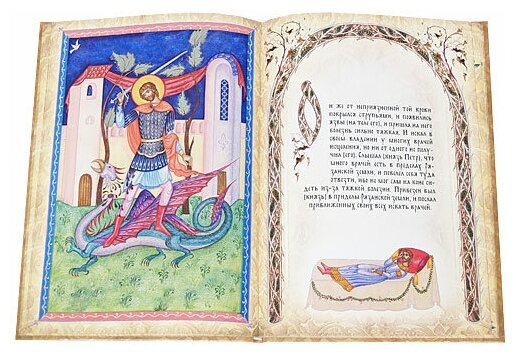 Он же от неприязненной той крови
покрылся струпьями, и появились
язвы (на теле его), и пришла на него
болезнь сильно тяжкая. И искал в
своем владении у многих врачей
исцеления, но ни от одного не полу-
чил (его). Слышал (князь Петр), что
много врачей есть в пределах Ря-
занской земли, и повелел себя туда
отвезти, ибо не мог сам на коне си-
деть из-за тяжкой болезни. Привезен был
(князь) в пределы Рязанской земли, и послал
приближенных своих всех искать врачей.